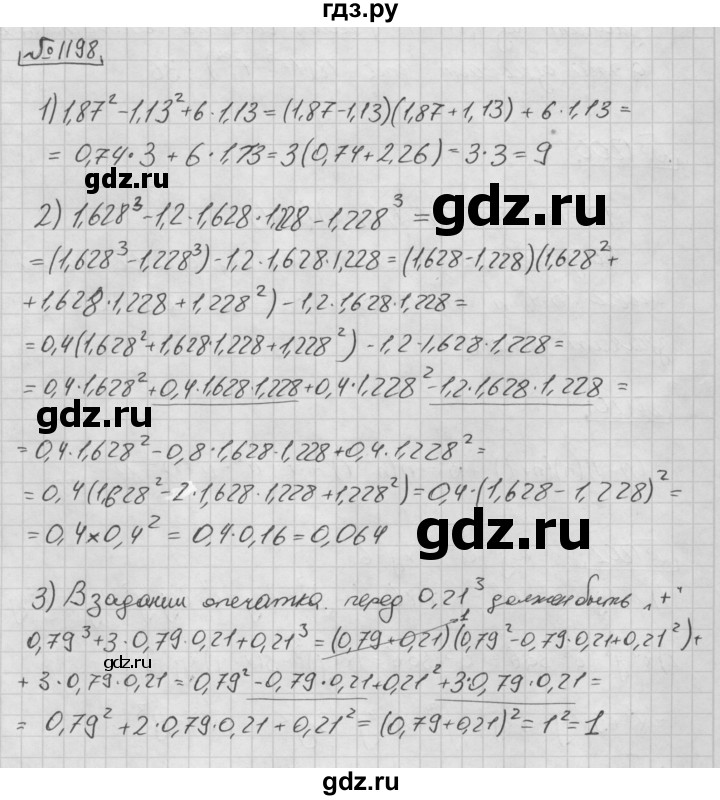 гдз.ру
№1198.
1) 1,87² - 1,13² + 6·1,13 = (1,87-1,13)(1,87+1,13) + 6·1,13 =
= 0,74·3 + 6·1,13 = 3(0,74+2,26) = 3·3 = 9
gdz.ru
2) 1,628³ - 1,2·1,628·1,228 - 1,228³ =
gdz.ru
= (1,628³ - 1,228³) - 1,2·1,628·1,228 = (1,628-1,228)(1,628² +
+ 1,628·1,228 + 1,228²) - 1,2·1,628·1,228 =
= 0,4(1,628² + 1,628·1,228 + 1,228²) - 1,2·1,628·1,228 =
= 0,4·1,628² + 0,4·1,628·1,228 + 0,4·1,228² - 1,2·1,628·1,228 =
gdz.ru
= 0,4·1,628² - 0,8·1,628·1,228 + 0,4·1,228² =
= 0,4(1,628² - 2·1,628·1,228 + 1,228²) = 0,4·(1,628 - 1,228)² =
= 0,4×0,4² = 0,4·0,16 = 0,064
gdz.ru
3) В задании опечатка. перед 0,21³ должен быть „+"
0,79³ + 3·0,79·0,21 + 0,21³ = (0,79+0,21)¹(0,79² - 0,79·0,21 + 0,21²) +
gdz.ru
+ 3·0,79·0,21 = 0,79² - 0,79·0,21 + 0,21² + 3·0,79·0,21 =
= 0,79² + 2·0,79·0,21 + 0,21² = (0,79+0,21)² = 1² = 1
gdz.ru